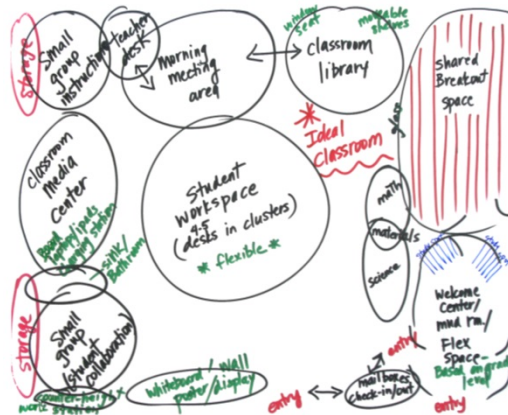 storage
Small
group
instruction
teacher
desk
morning
meeting
area
window
seat
moveable
shelves
classroom
library
shared
Breakout
space
glass
Ideal
Classroom
Classroom
Media
Center
laptop/ipads
charging station
sink/
Bathroom
Student
workspace
4-5
(desks in clusters)
* flexible *
math
materials
science
storage
Small
group
(student
collaboration)
counter-height
work station
whiteboard/wall
poster/display
entry
mailboxes
check-in/out
entry
Welcome
Center/
mud rm./
Flex
space-
Based on grade
level
entry